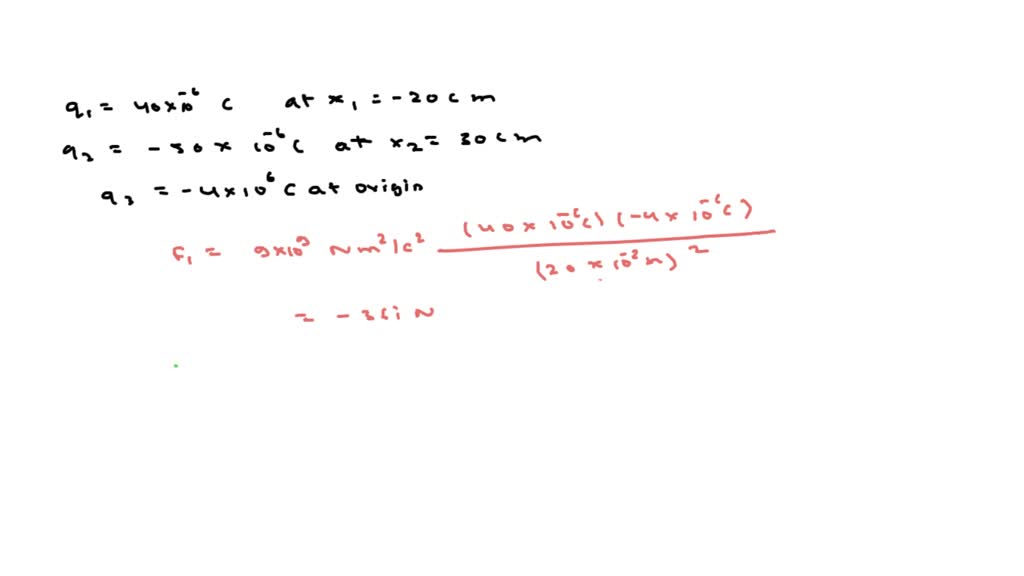 q₁ = 40×10⁻⁶ C at x₁ = -20 cm
q₂ = -50 × 10⁻⁶ C at x₂ = 30 cm
q₃ = -4×10⁶ C at origin
F₁ = 9×10⁹ Nm²/C² (40 × 10⁻⁶ C) (-4 × 10⁻⁶ C) / (20 × 10⁻² m)²
= -36 i N